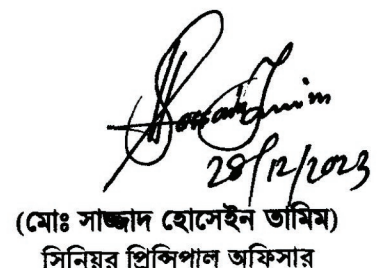 28/12/2023
(মোঃ সাজ্জাদ হোসেইন তামিম)
সিনিয়র প্রিন্সিপাল অফিসার